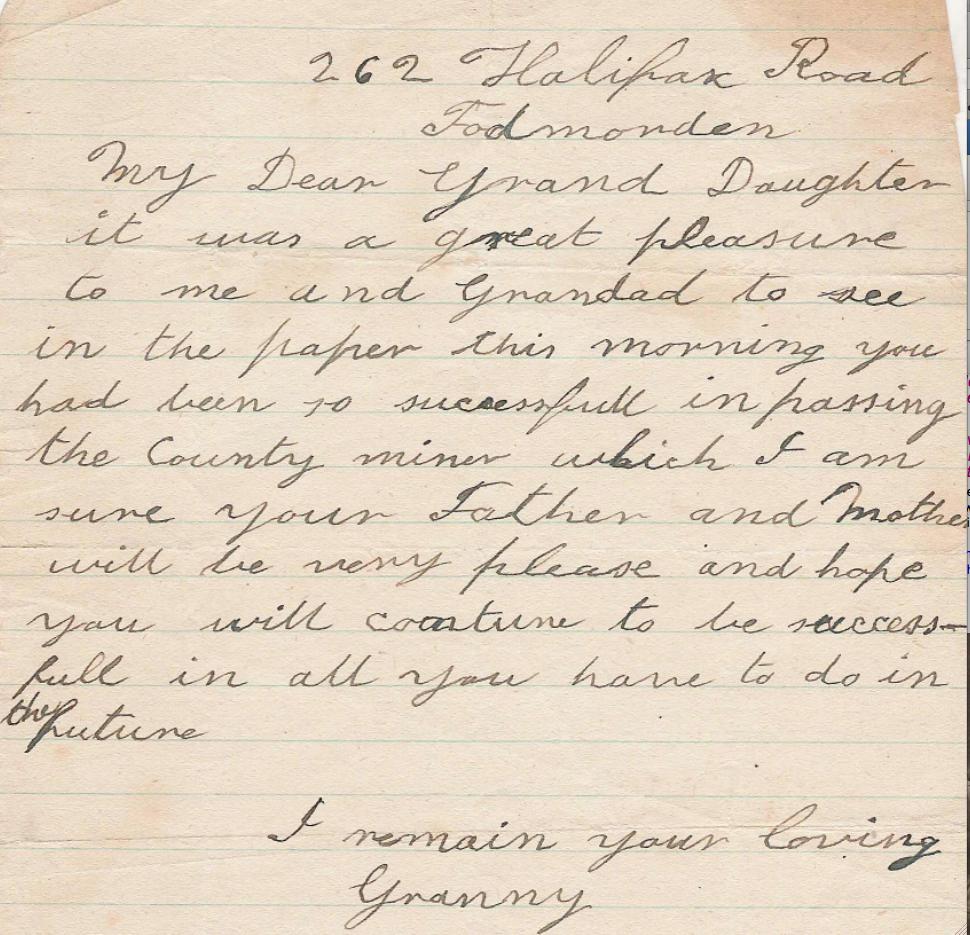 262 Halifax Road
Todmorden
My Dear Grand Daughter
it was a great pleasure
to me and Grandad to see
in the paper this morning you
had been so successfull in passing
the County miner which I am
sure your Father and Mother
will be very please and hope
you will contune to be success-
full in all you have to do in
the future
I remain your loving
Granny